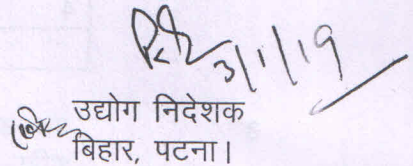 3/1/19
उद्योग निदेशक
बिहार, पटना।